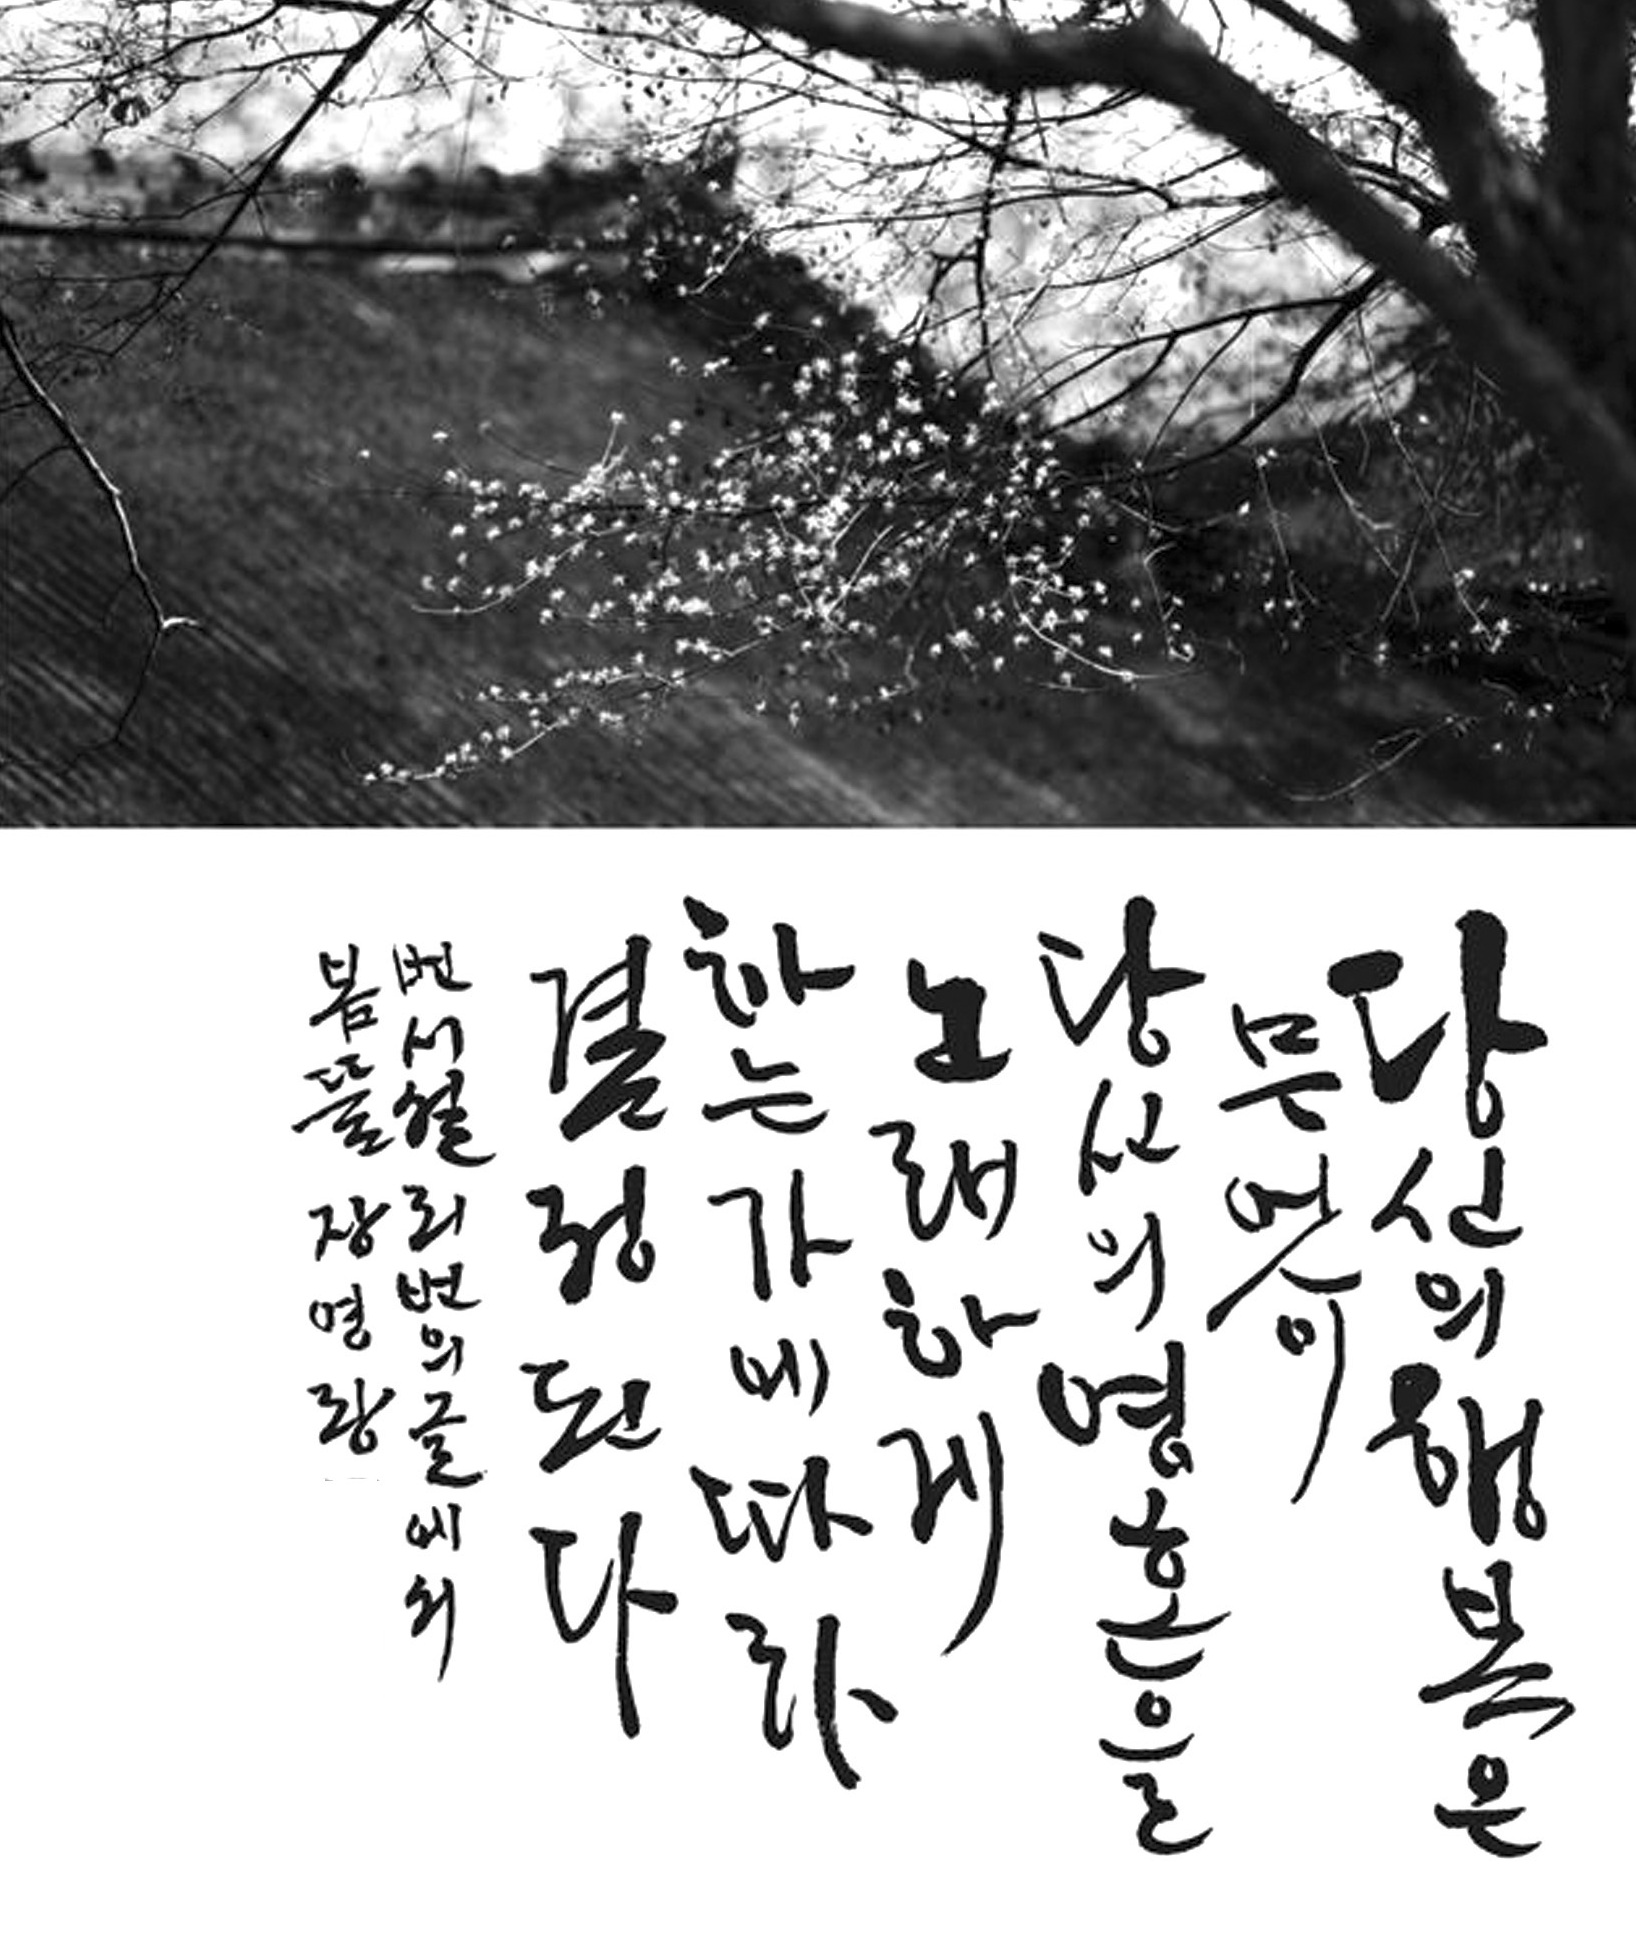 당신의 행복은
무엇이
당신의 영혼을
노래하게
하는가에 따라
결정된다
번서설리번의 글에서
봄뜰 장영랑